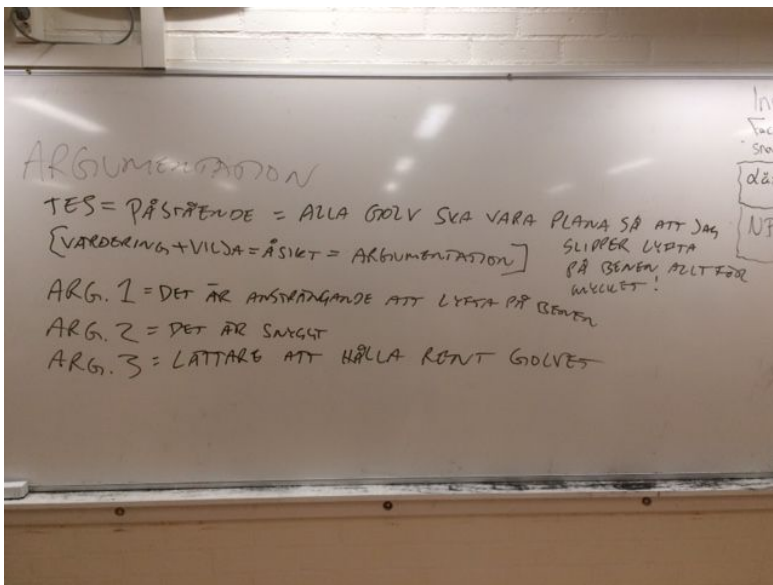 ARGUMENTATION
TES = PÅSTÅENDE = ALLA GOLV SKA VARA PLANA SÅ ATT JAG
SLIPPER LYFTA
PÅ BENEN ALLT FÖR
MYCKET!
[VÄRDERING + VILJA = ÅSIKT = ARGUMENTATION]
ARG. 1 = DET ÄR ANSTRÄNGANDE ATT LYFTA PÅ BENEN
ARG. 2 = DET ÄR SNYGGT
ARG. 3 = LÄTTARE ATT HÅLLA RENT GOLVET
In